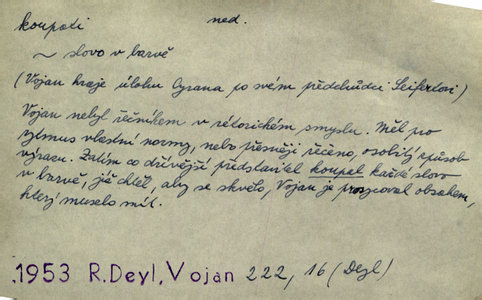 koupati ned.
~ slovo v barvě
(Vojan hraje úlohu Cyrana po svém předchůdci Seifertovi)
Vojan nebyl řečníkem v rétorickém smyslu. Měl pro
rytmus vlastní normy, nebo přesněji řečeno, osobitý způsob
výrazu. Zatím co dřívější představitel koupal každé slovo
v barvě, jíž chtěl, aby se skvělo, Vojan je propracoval obsahem,
který muselo mít.
1953 R.Deyl, Vojan 222, 16 (Deyl)